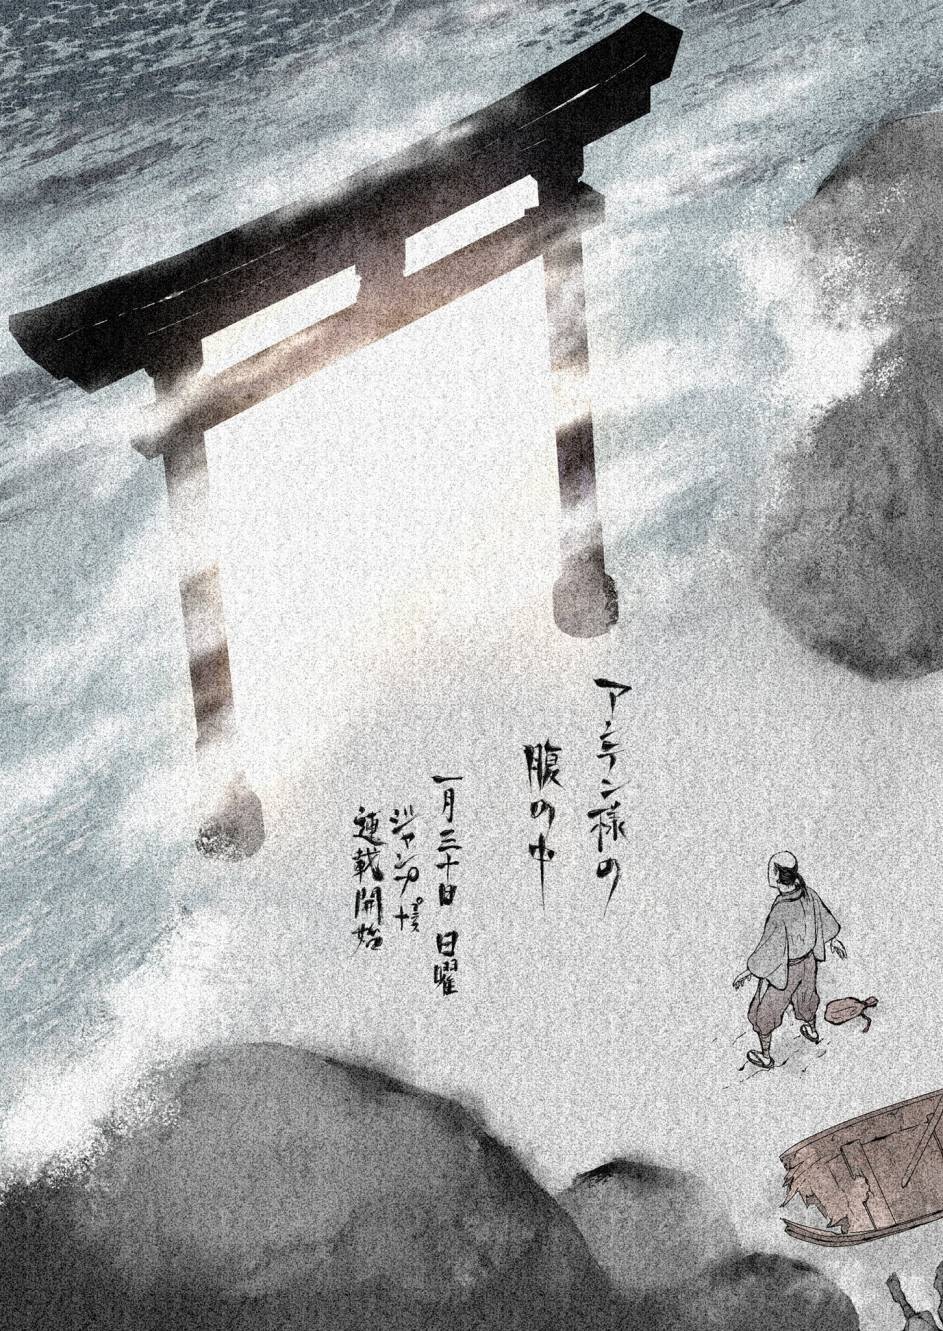 アンテン様の
腹の中
一月三十日 日曜
ジャンプ+様
連載開始